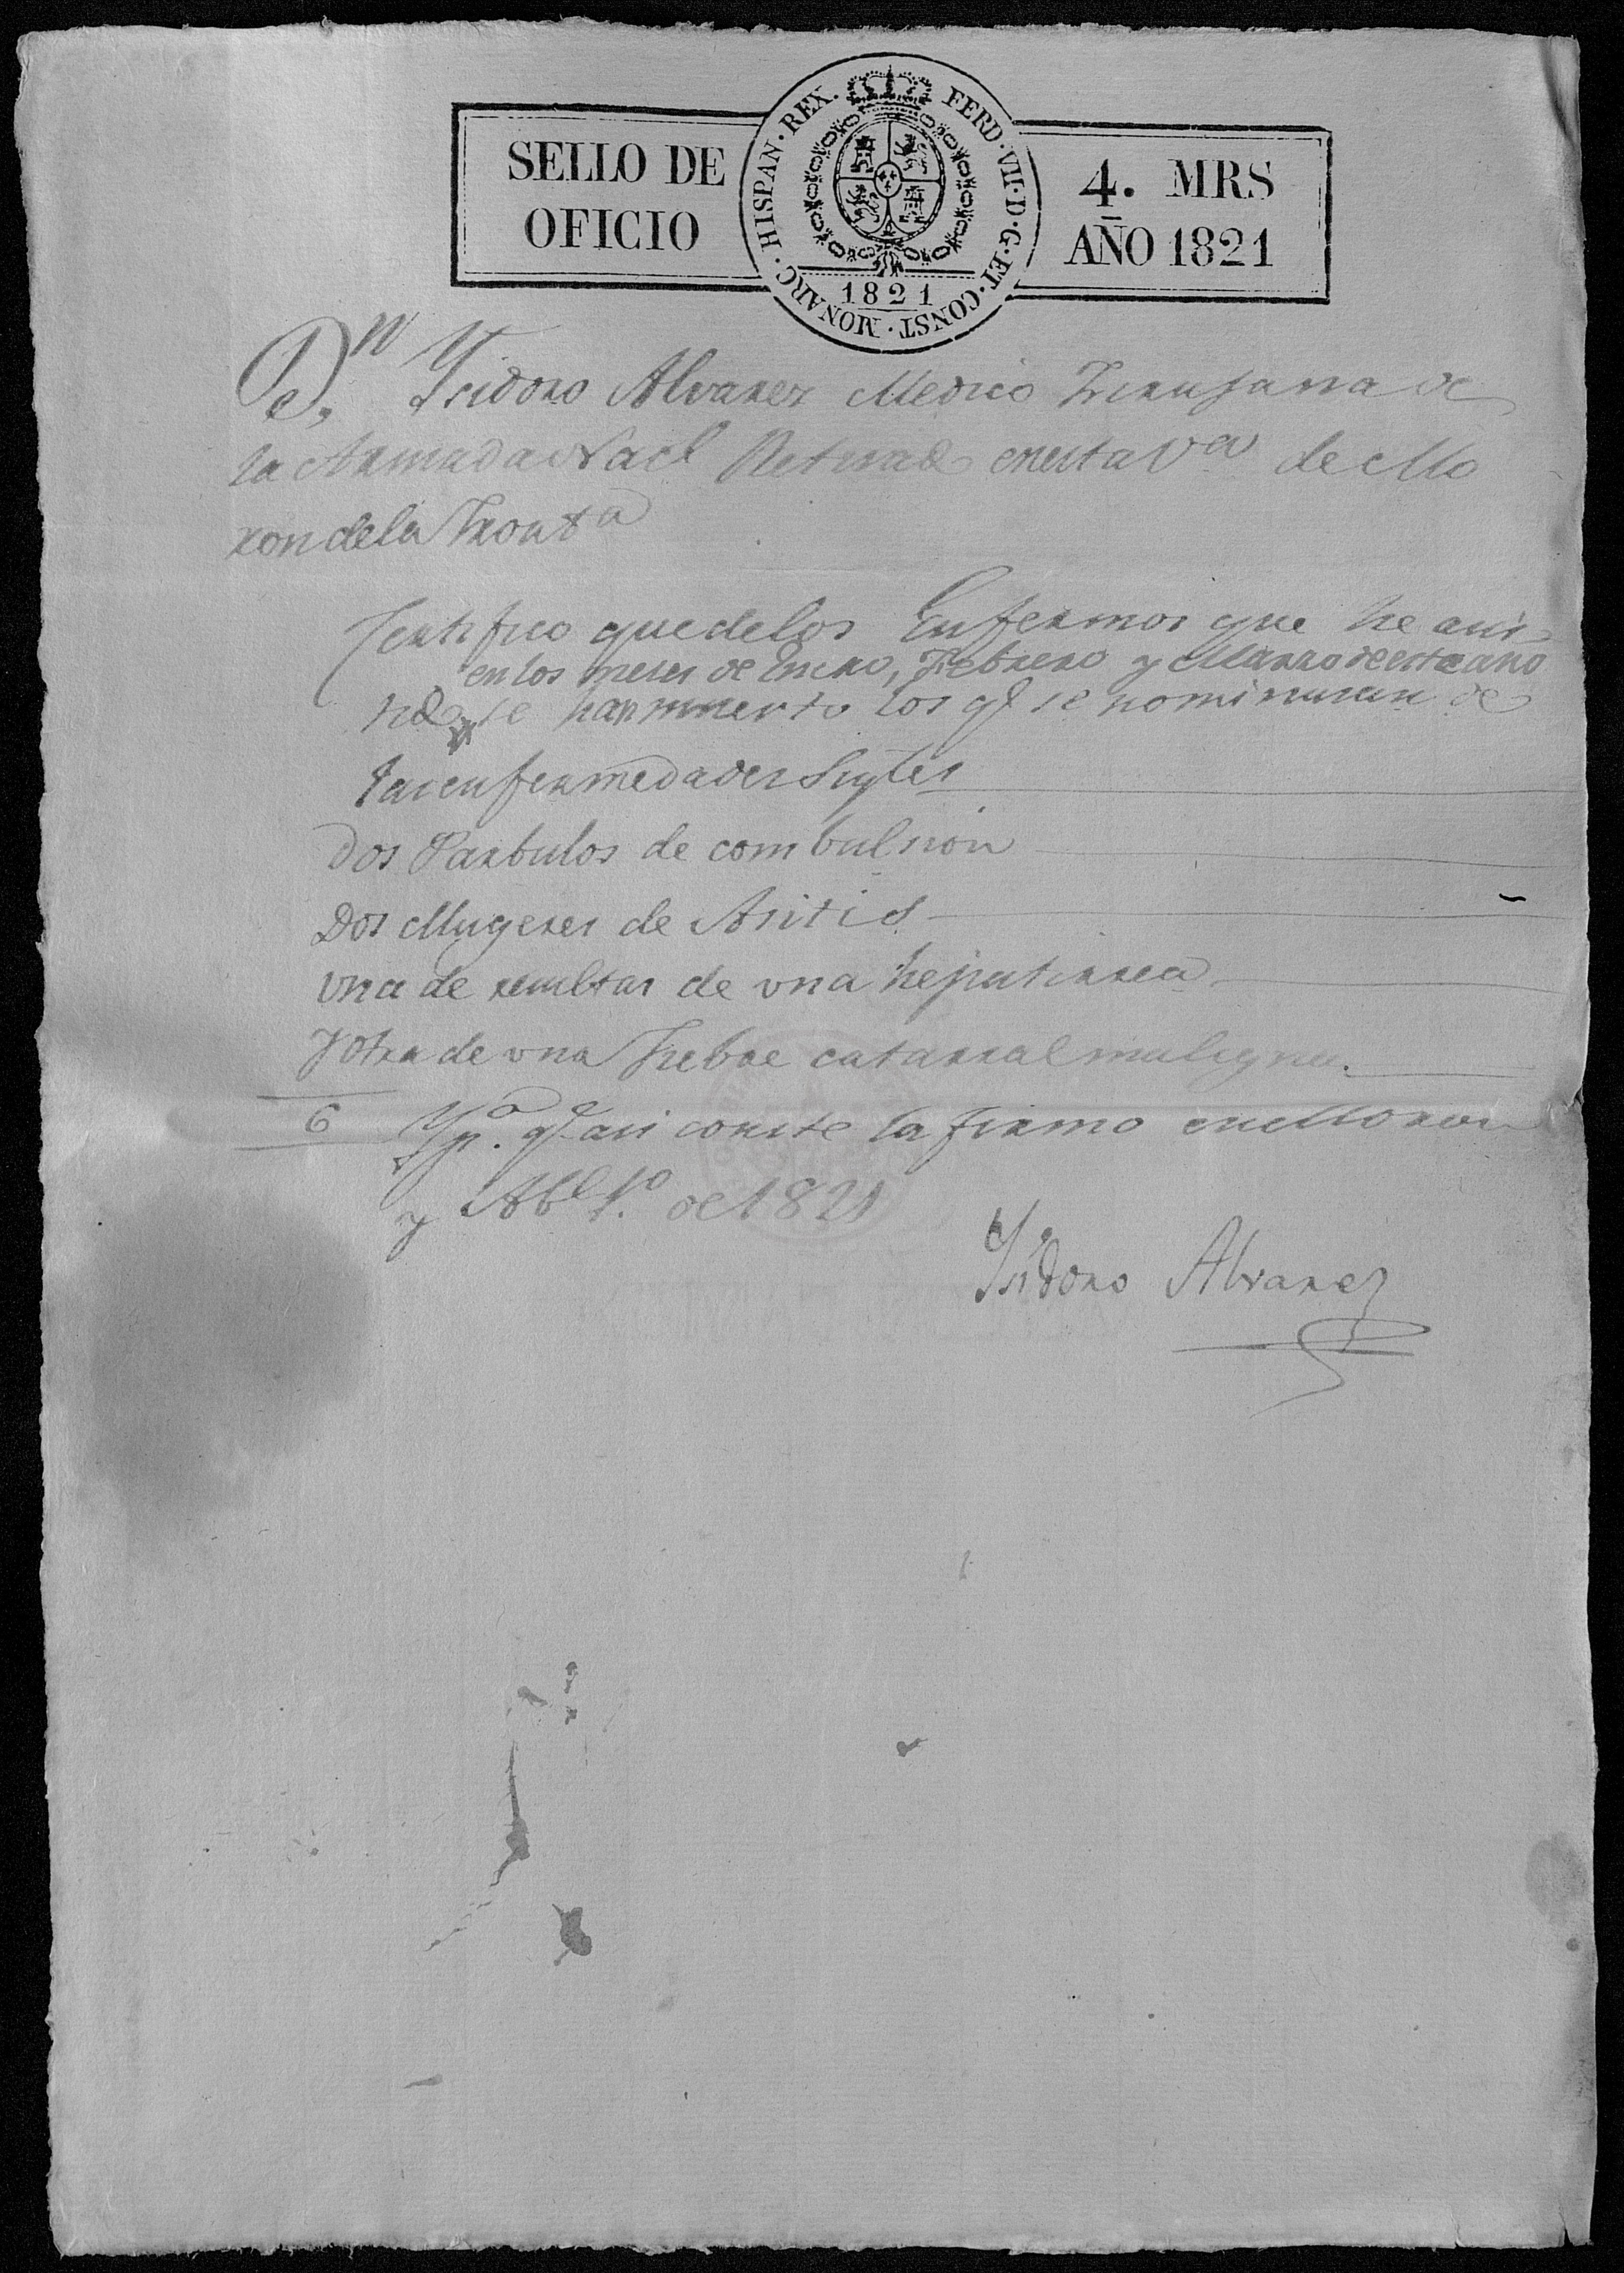 SELLO DE
OFICIO
HISPAN · REX · FERD · VII · D · G · ET · CONST · MONARC ·
1821
4. MRS
AÑO 1821
Dn Ysidoro Alvarez Medico Zirujana de
la Armada Nacl Retirado en esta Va de Mo
ron de la Fronta
Certifico que de los Enfermos que he asis-
en los meses de Enero, Febrero y Marzo de este año
tido se han muerto los qe se nominaran de
las enfermedades Sigtes
Dos Parbulos de combulsion
Dos Mugeres de Asitis
Una de resultas de una hepatirrea
Y Otra de una Fiebre catarral maligna.
6 Ypa qe asi conste la firmo en Moron
y Abl 1º de 1821
Ysidoro Alvarez